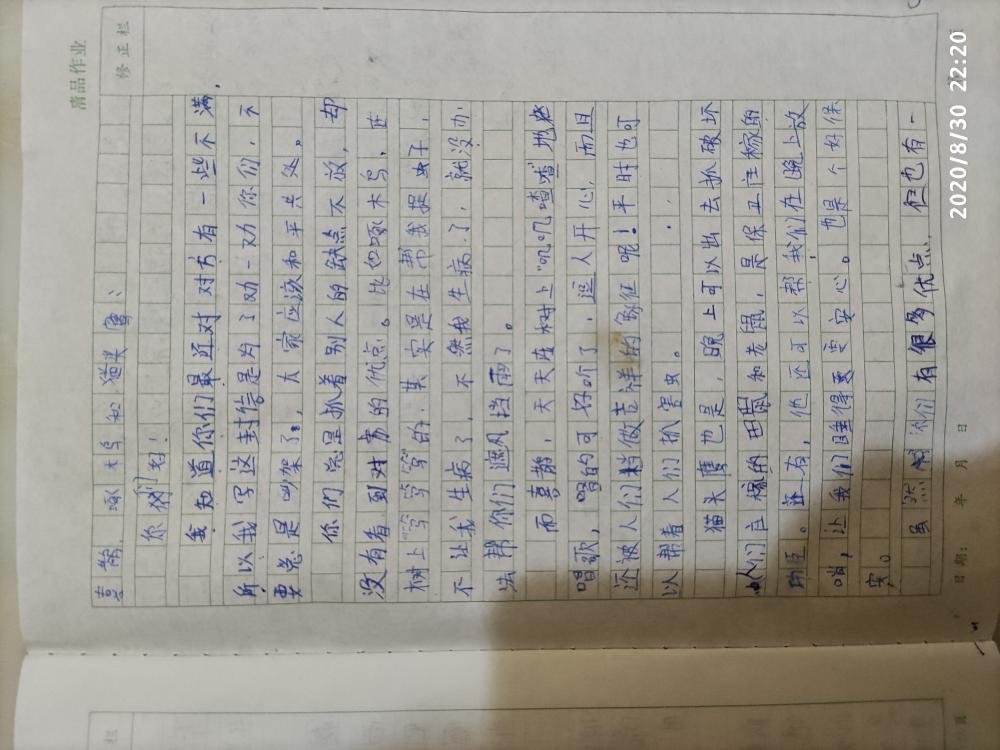 清品作业
修正栏
喜鹊、啄木鸟和猫头鹰:
你们好!
我知道你们最近对对方有一些不满,
所以我写这封信是为了劝一劝你们,不
要总是吵架了,大家应该和平共处。
你们总是抓着别人的缺点不放,却
没有看到对方的优点。比如啄木鸟,在
树上"笃笃笃"的,其实是在帮我捉虫子,
不让我生病了,不然我生病了,就没办
法帮你们遮风挡雨了。
而喜鹊,天天在树上"叽叽喳喳"地
唱歌,唱的可好听了,逗人开心,而且
还被人们当做吉祥的象征呢!平时也可
以帮着人们抓害虫。
猫头鹰也是,晚上可以出去抓破坏
人们庄稼的田鼠和老鼠,是保卫庄稼的
。还有,他还可以帮我们在晚上放
哨,让我们睡得更安心。也是个好保
安。
虽然你们有很多优点,但也有一
日期: 年 月 日
2020/8/30 22:20